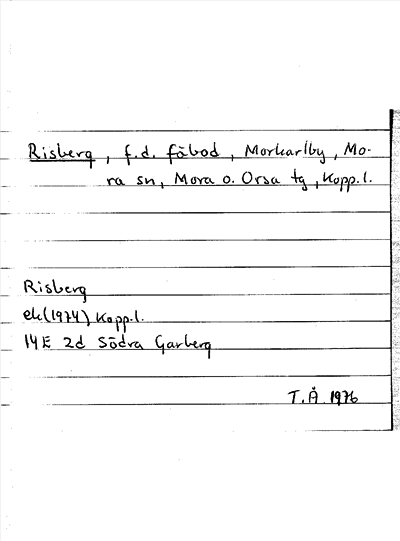 Risberg, f.d. fäbod, Morkarlby, Mo-
ra sn, Mora o. Orsa tg, Kopp.l.
Risberg
ek(1974), Kopp.l.
14E 2d Södra Garberg
T.Å. 1976